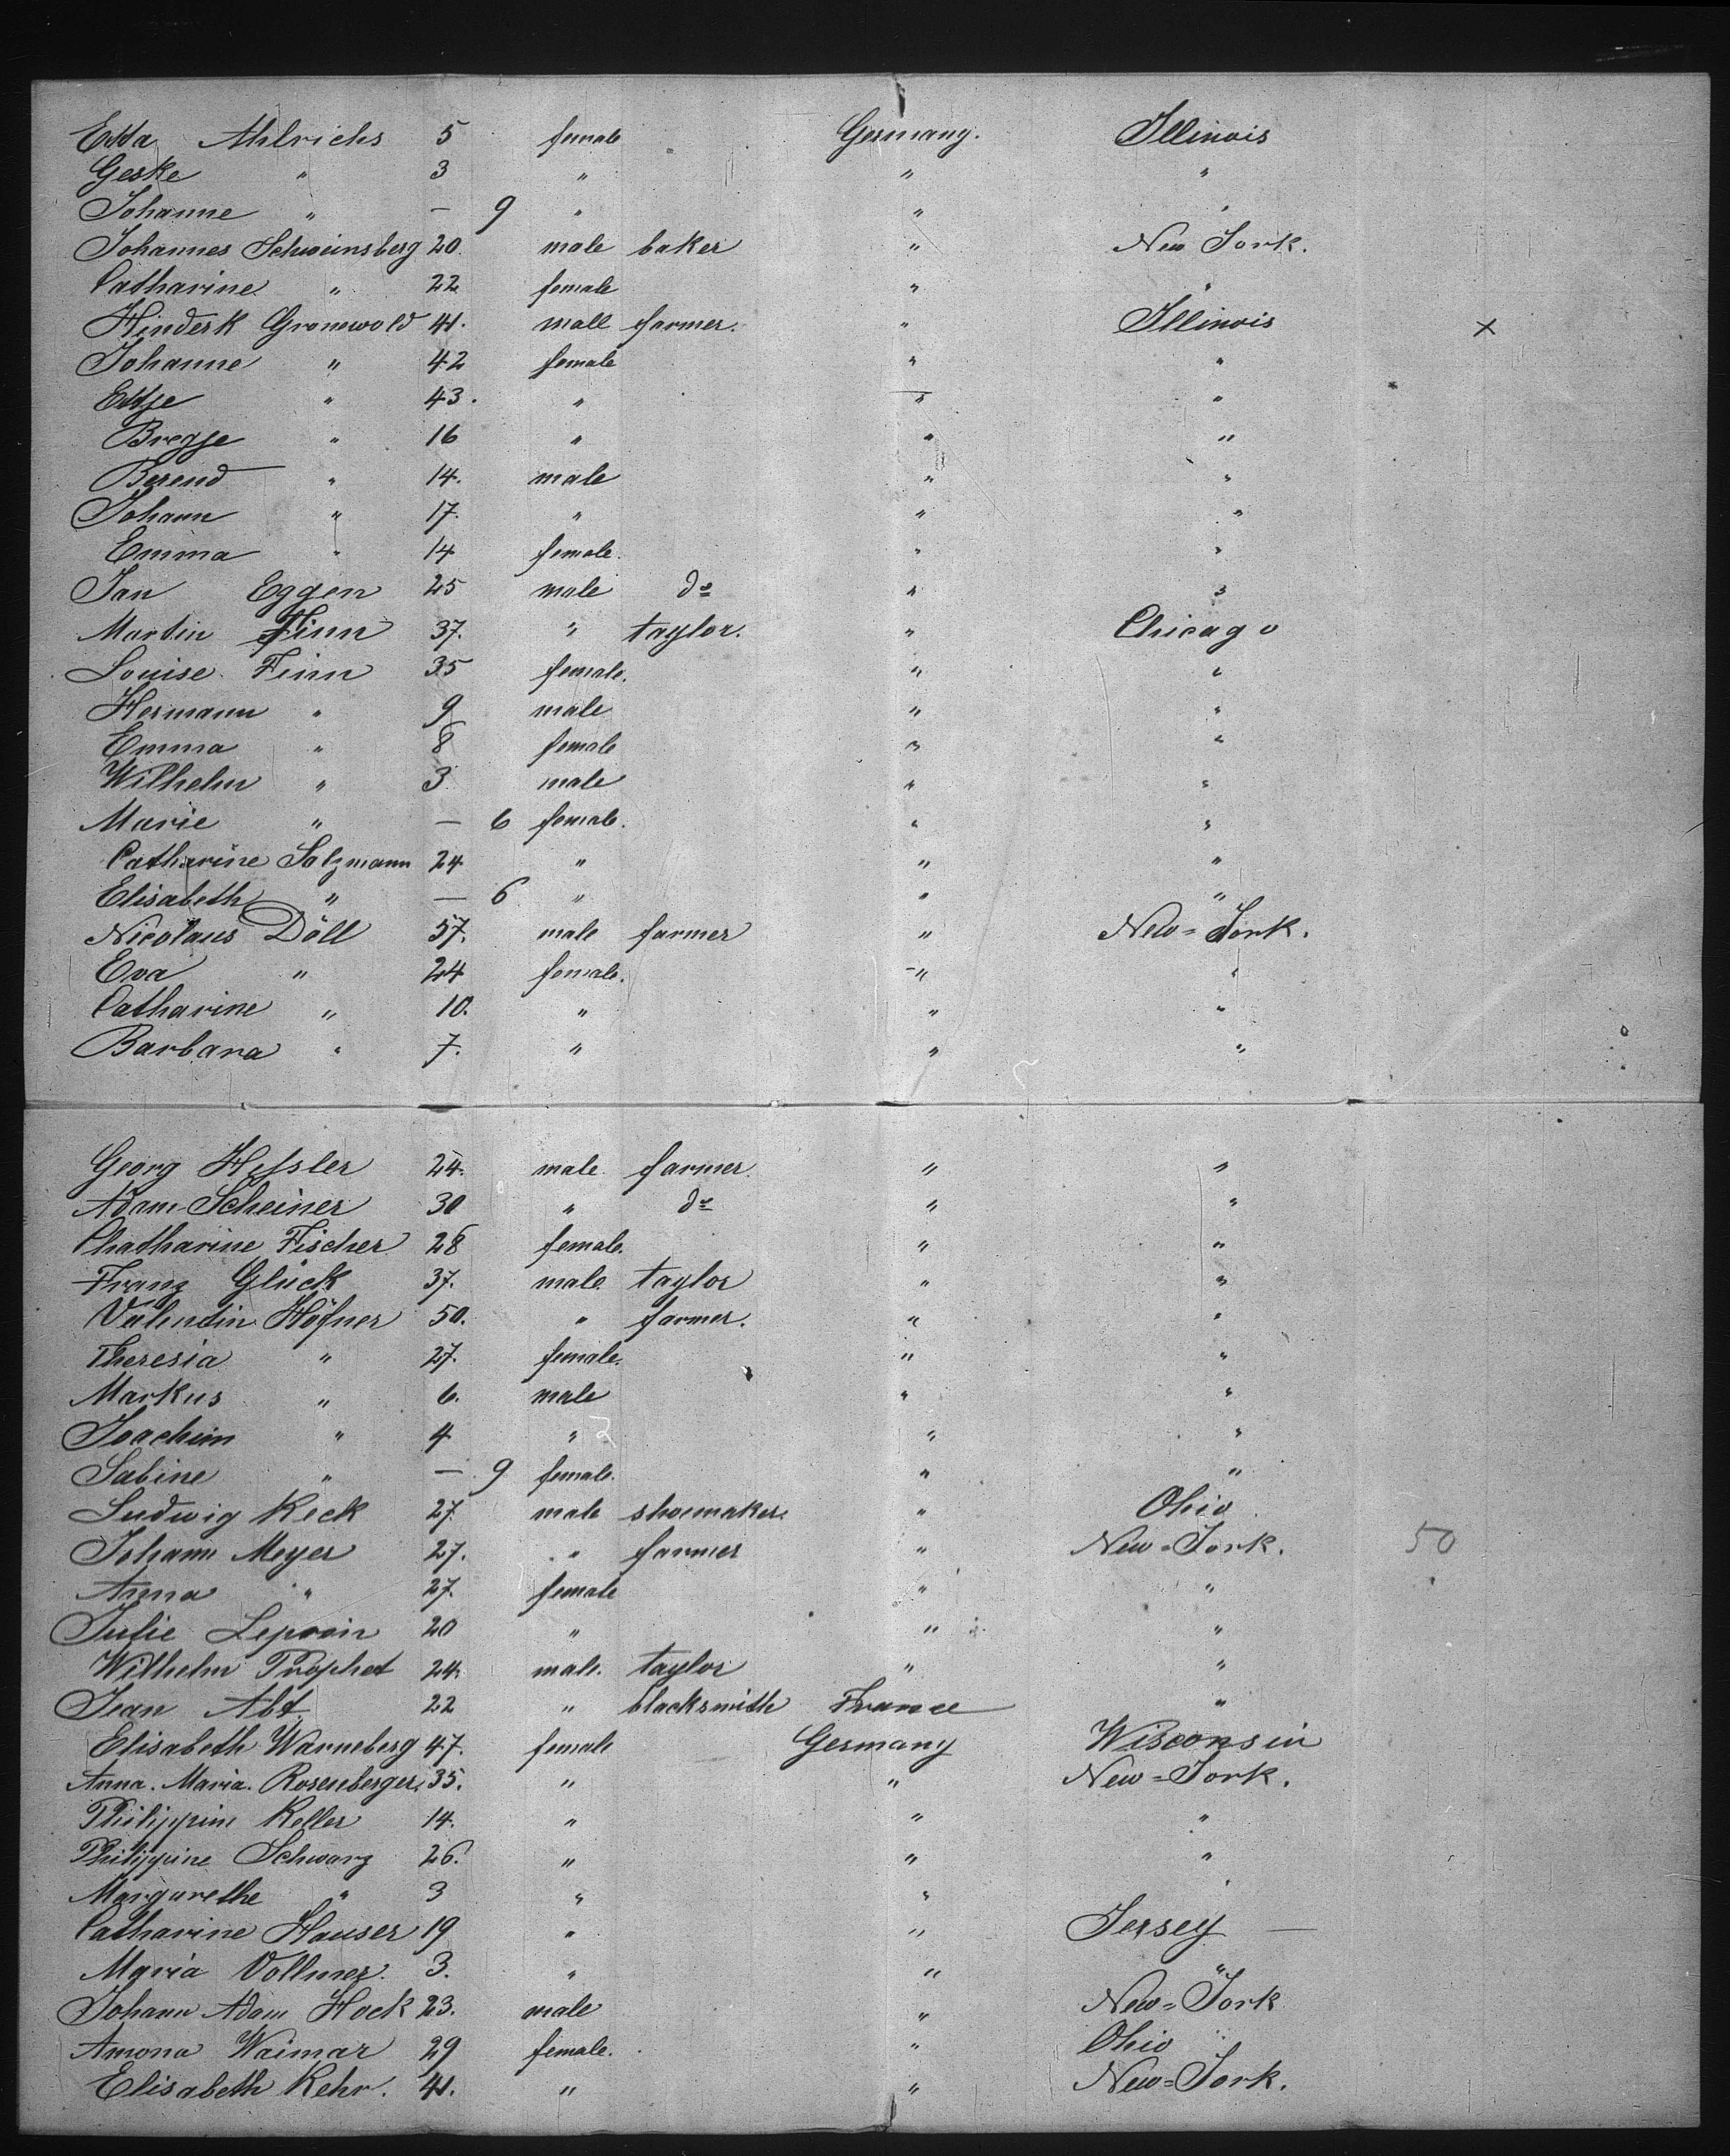 Etta Ahlrichs 5 female Germany. Illinois
Geske " 3 " " "
Johanne " — 9 " " "
Johannes Schweinsberg 20 male baker " New York.
Catharine " 22 female " "
Hinderk Gronewold 41. mall farmer. " Illinois ×
Johanne " 42 female " "
Ettje " 43. " " "
Bregje " 16 " " "
Berend " 14. male " "
Johann " 17. " " "
Emma " 14 female. " "
Jan Eggen 25 male do " "
Martin Finn 37. " taylor. " Chicago
Louise Finn 35 female. " "
Hermann " 9 male " "
Emma " 8 female " "
Wilhelm " 3 male " "
Marie " — 6 female. " "
Catharine Salzmann 24 " " "
Elisabeth " — 6 " " "
Nicolaus Döll 57. male farmer " New=York.
Eva " 24 female. " "
Catharine " 10. " " "
Barbara " 7. " " "
Georg Hessler 24. male farmer. " "
Adam Scheiner 30 " do " "
Chatharine Fischer 28 female. " "
Franz Glück 37. male taylor " "
Valentin Höfner 50. " farmer. " "
Theresia " 27. female. " "
Markus " 6. male " "
Joachim " 4 " " "
Sabine " — 9 female. " "
Ludwig Keck 27 male shoemaker. " Ohio.
Johann Meyer 27. " farmer " New=York. 50
Anna " 27. female " "
Julie 20 " " "
Wilhelm Prophet 24. male. taylor " "
Jean Abt 22 " blacksmith France "
Elisabeth Warneberg 47. female Germany Wisconsin
Anna. Maria. Rosenberger, 35. " " New=York.
Philippine Keller 14. " " "
Philippine Schwarz 26. " " "
Margarethe " 3 " " "
Catharine Hauser 19 " " Jersey —
Maria Vollmer. 3. " " "
Johann Adam Hock 23. male " New=York
Amona Waimar 29 female. " Ohio
Elisabeth Kehr. 41. " " New=York.